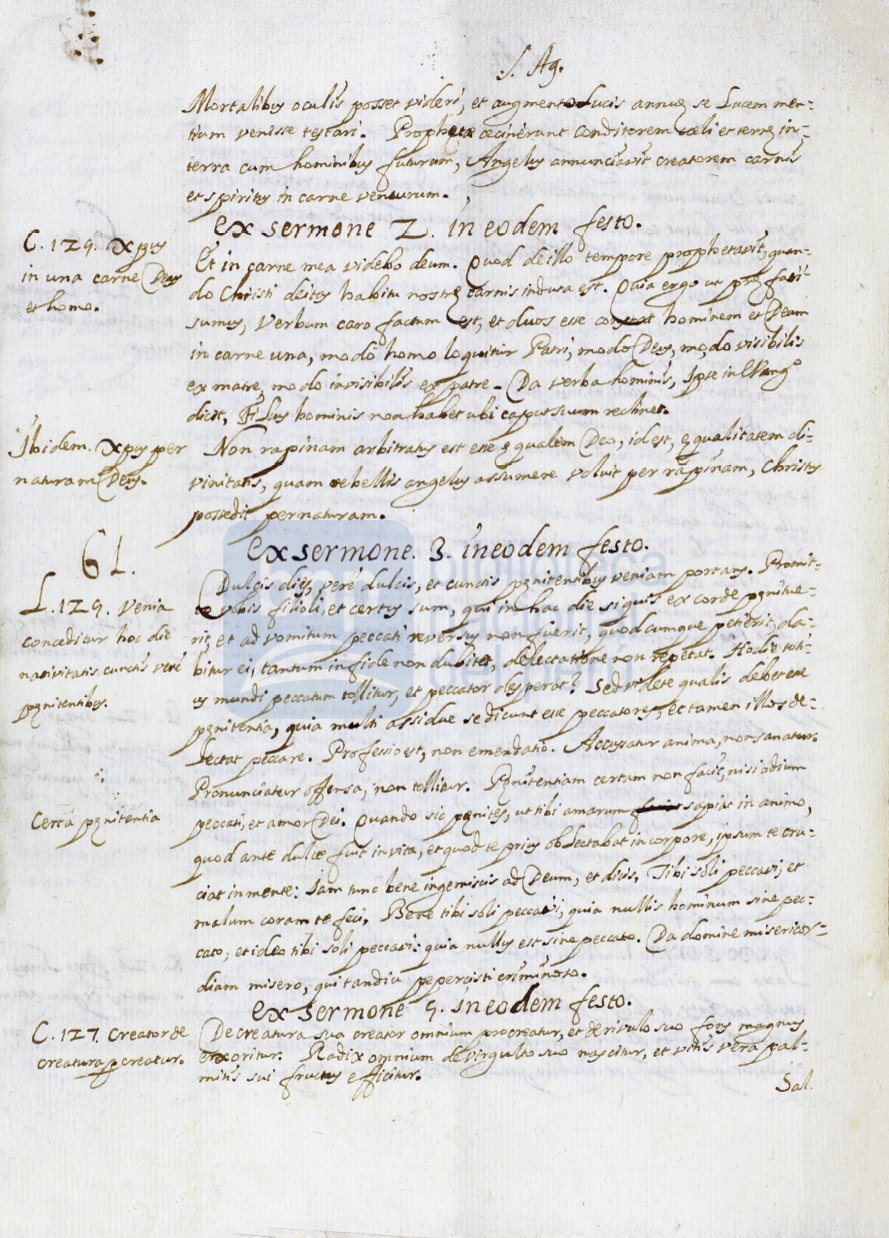 S. Ag.
Mortalibus oculis posset videri, et augmento Lucis annuę se Lucem men-
tium venisse testari. Prophetæ cecinerunt conditorem cœli et terrę in
terra cum hominibus futurum, Angelus annunciavit creatorem carnis
et spiritus in carne venturum.
Ex sermone 2. in eodem festo.
C. 129. Xpus
in una carne Deus
et homo.
Et in carne mea videbo deum. Quod de illo tempore prophetavit, quan-
do Christi deitas habitu nostrę carnis induta est. Quia ergo ut
sumus, Verbum caro factum est, et duos esse constat hominem et Deum
in carne una, modo homo loquitur Patri, modo Deus, modo visibilis
ex matre, modo invisibilis ex patre. Da verba hominis, Ipse in Evangº
dicit, Filius hominis non habet ubi caput suum reclinet.
Ibidem. Xpus per
naturam Deus.
Non rapinam arbitratus est esse ęqualem Deo, id est, ęqualitatem di-
vinitatis, quam rebellis angelus assumere voluit per rapinam, Christus
possedit per naturam.
Ex sermone. 3. in eodem festo.
61.
L. 129. Venia
conceditur hoc die
nativitatis cunctis verè
pęnitentibus.
Dulcis dies, verè dulcis, et cunctis pęnitentibus veniam portans. Promit-
to vobis filioli, et certus sum, qui in hac die siquis ex corde pęnitue-
rit, et ad vomitum peccati reversus non fuerit, quodcumque petierit, da-
bitur ei, tantum in fide non dubitet, delectatione non repetat. Hodie toti-
us mundi peccatum tollitur, et peccator desperat? Sed videte qualis debet esse
pęnitentia, quia multi assidue se dicunt esse peccatores, et tamen illos de-
lectat peccare. Professio est, non emendatio. Accusatur anima, non sanatur.
Pronunciatur offensa, non tollitur. Pęnitentiam certam non facit, nisi odium
peccati, et amor Dei. Quando sic pęnites, ut tibi amarum sapiat in animo,
Certa pęnitentia
quod ante dulce fuit in vita, et quod te prius oblectabat in corpore, ipsum te cru-
ciat in mente: Iam tunc bene ingemiscis ad Deum, et dicis, Tibi soli peccavi, et
malum coram te feci. Bene tibi soli peccavi, quia nullis hominum sine pec-
cato, et ideo tibi soli peccavi: quia nullus est sine peccato. Da domine misericor-
diam misero, qui tandiu pepercisti criminoso.
Ex sermone 5. in eodem festo.
C. 127. Creator de
creatura pcreatur.
De creatura sua creator omnium procreatur, et de rivulo suo fons magnus
exoritur. Radix omnium de virgulto suo nascitur, et vitis vera pal-
mitis sui fructus efficitur.
Sal.
biblioteca
nacional
del perú